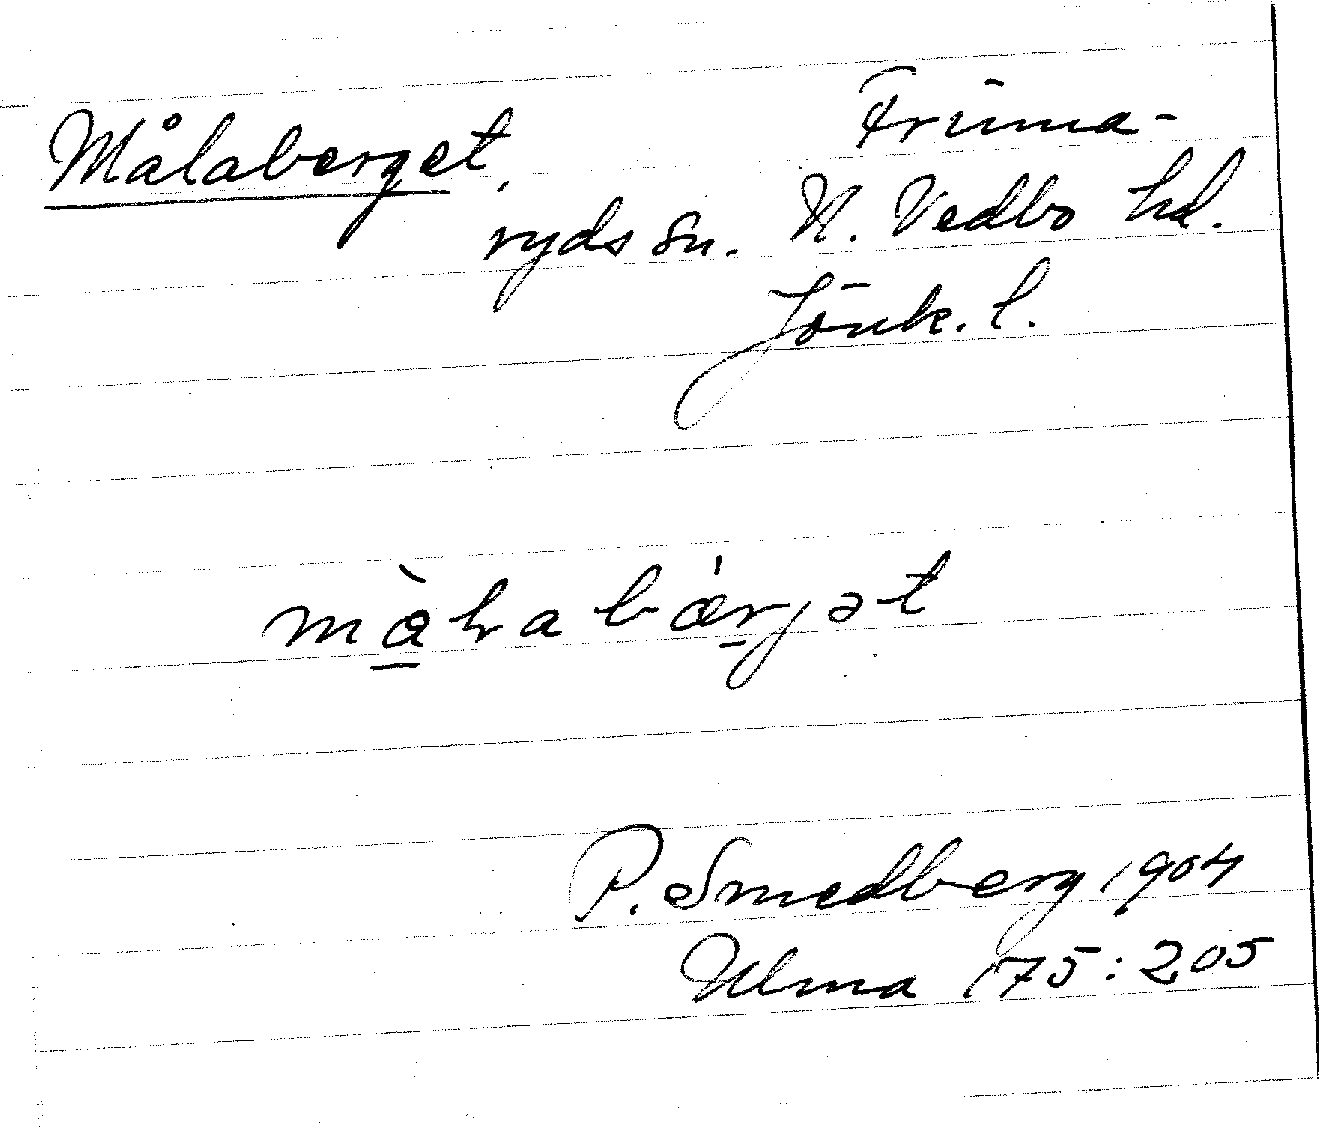 Målaberget,
Frinna-
ryds sn. N. Vedbo hd.
Jönk. l.
màlabǽrjət
P. Smedberg 1904
Ulma 175:205